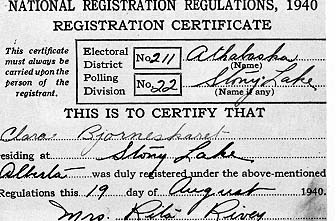 NATIONAL REGISTRATION REGULATIONS, 1940
REGISTRATION CERTIFICATE
This certificate must always be carried upon the person of the registrant.
Electoral District No. 211 Athabaska
(Name)
Polling Division No. 22 Stony Lake
(Name if any)
THIS IS TO CERTIFY THAT
Clara Bjorneskaret
residing at Stony Lake
Alberta was duly registered under the above-mentioned
Regulations this 19 day of August 1940.
Mrs. Rita River